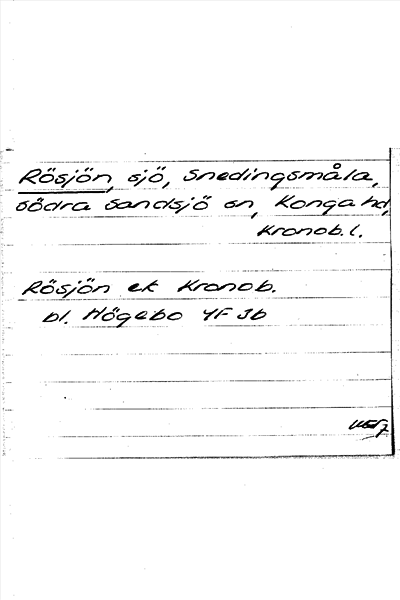 Rösjön, sjö, Snedingsmåla,
Södra Sandsjö sn, Konga hd,
Kronob. l.
Rösjön ek Kronob.
bl. Högebo 4F 3b